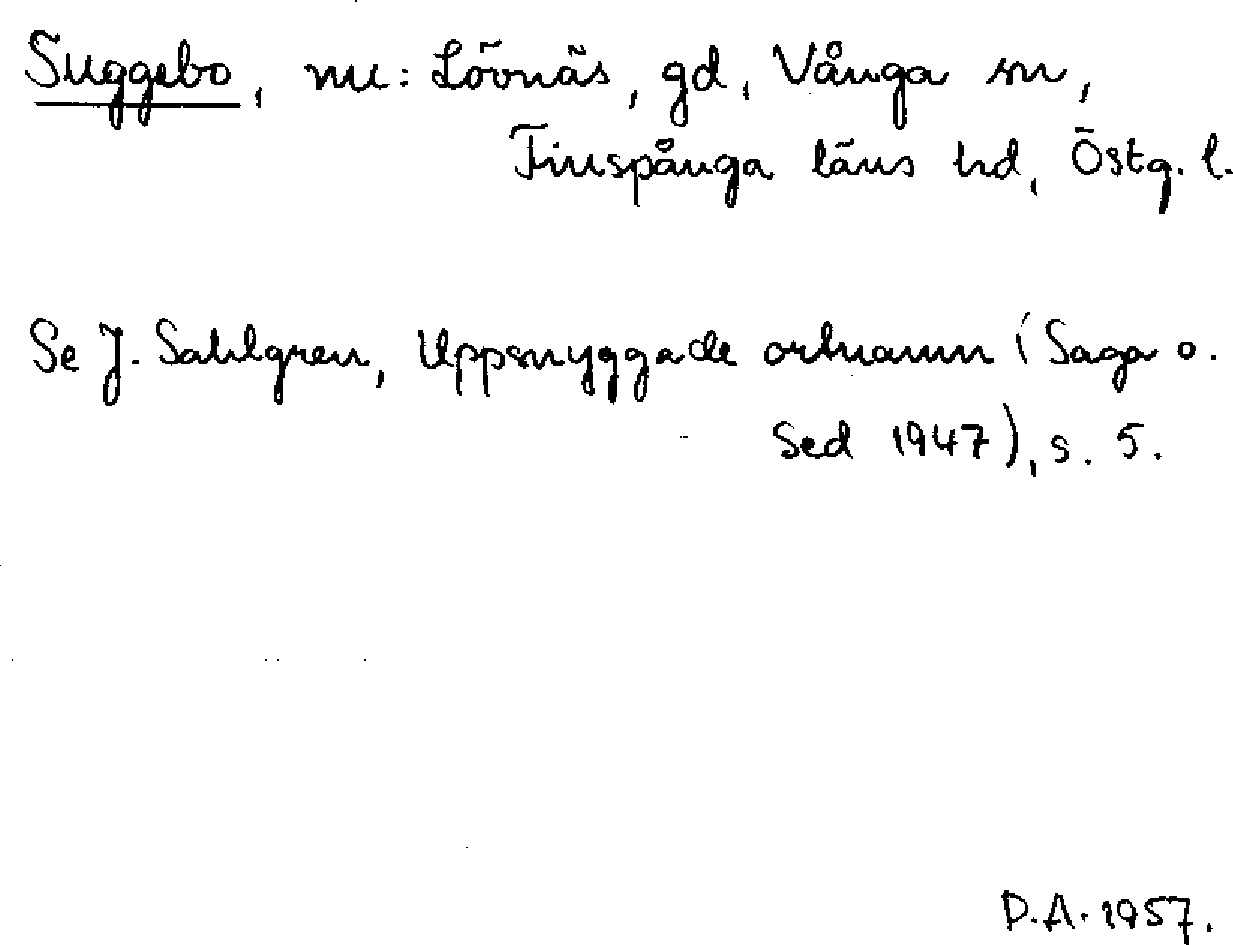 Suggebo, nu: Lövnäs, gd, Vånga sn,
Finspånga läns hd, Östg. l.
Se J. Sahlgren, Uppsnyggade ortnamn (Saga o.
Sed 1947), s. 5.
D.A. 1957.